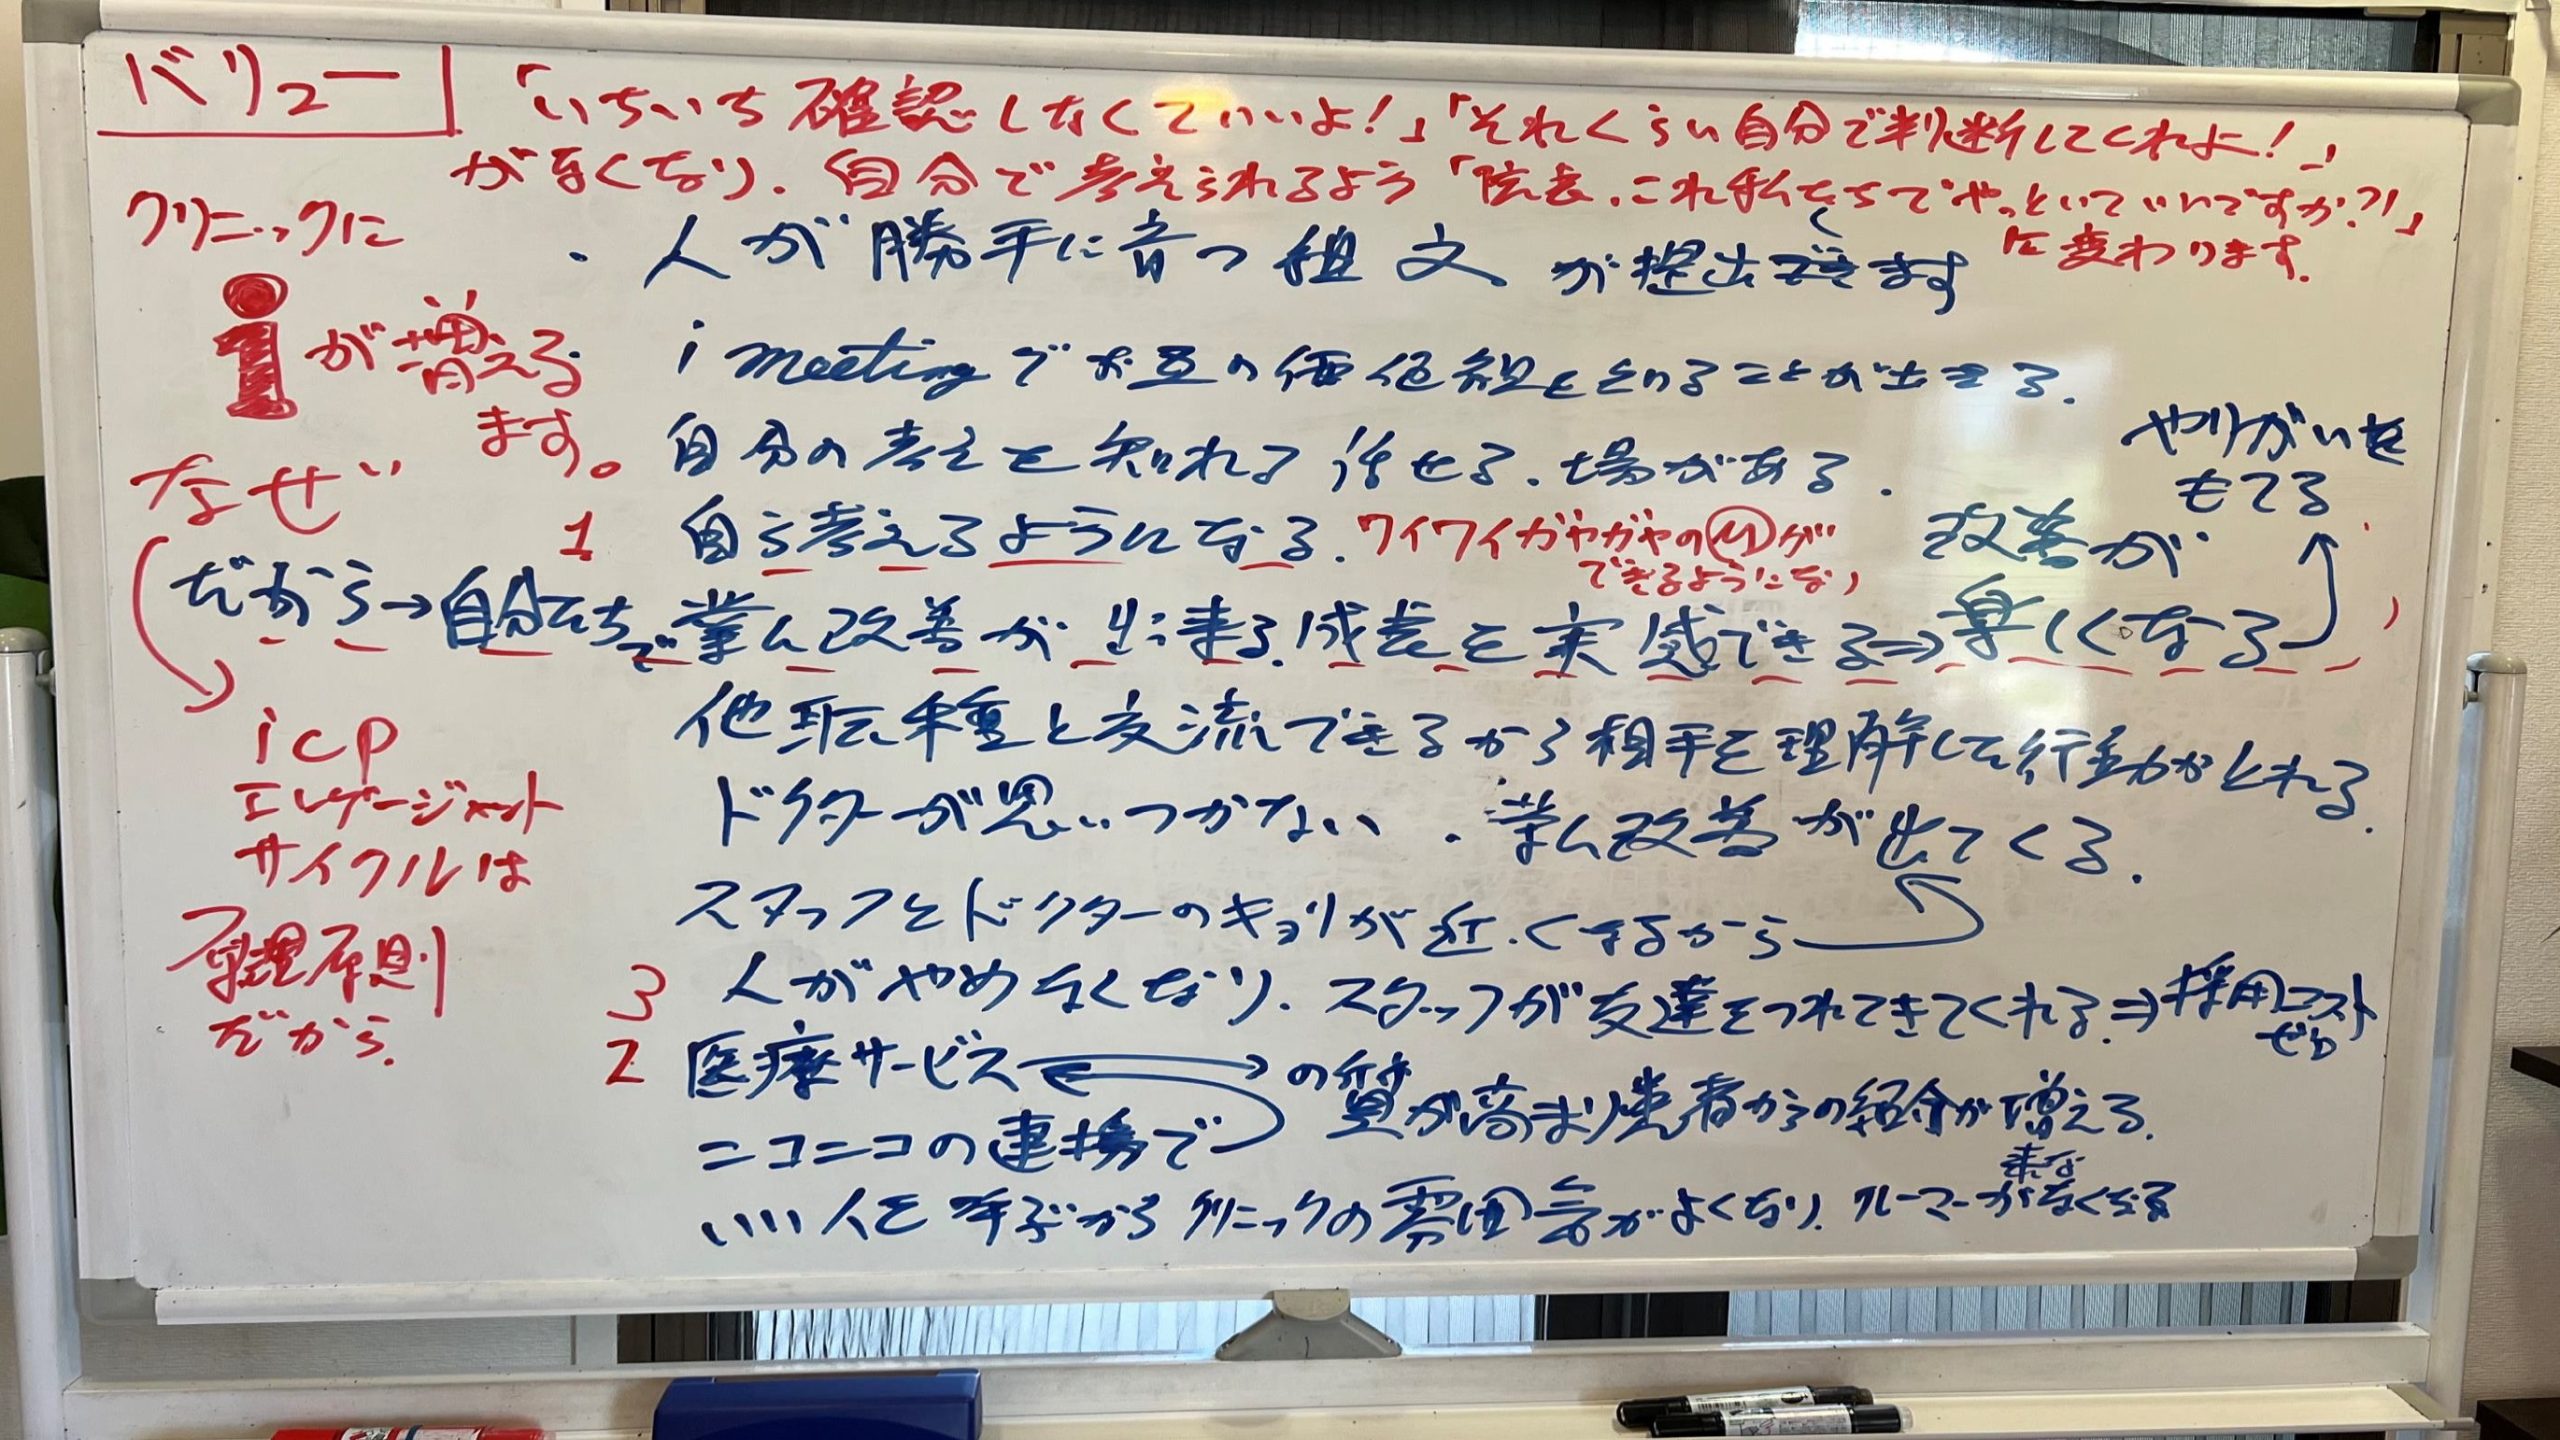 バリュー
「いちいち確認しなくていいよ!」「それくらい自分で判断してくれよー!」
がなくなり、自分で考えられるよう「院長、これ私たちでやっといていいですか?!」
に変わります。
クリニックに
iが増える
ます。
・人が勝手に育つ組文が提出できます
i meetingでお互の価値観をしることが出きる。
自分の考えを知れる 話せる、場がある。
やりがいを
もてる
なぜ
1 自ら考えるようになる。ワイワイガヤガヤの
できるようになり
改善が
だから→自分たちで業ム改善が出来る。成長を実感できる⇒楽しくなる
他職種と交流できるから相手を理解した行動がとれる。
icp
エンゲージメント
サイクルは
原理原則
だから。
ドクターが思いつかない・業ム改善が出てくる。
スタッフとドクターのキョリが近くなるから
3 人がやめなくなり、スタッフが友達をつれてきてくれる。⇒採用コスト
ゼロ
2 医療サービスの質が高まり患者からの紹介が増える。
ニコニコの連携で
いい人を呼ぶからクリニックの雰囲気がよくなり、クレーマーが
来な
なくなる